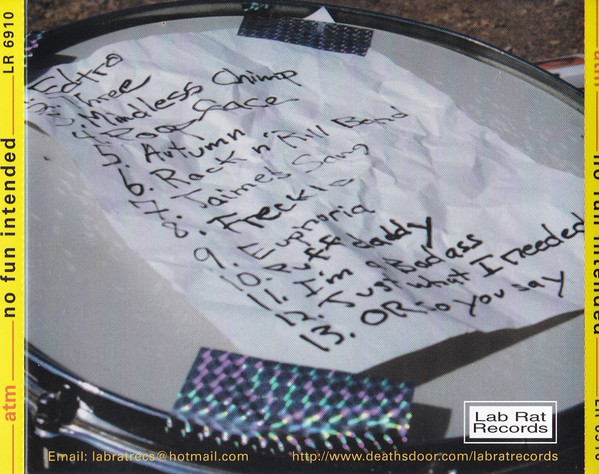 atm no fun intended LR 6910
Three
3. Mindless Chimp
4. Poop Face
5. Autumn
6. Band
7. Jaimes Song
8. Freckle
9. Euphoria
10. Puff daddy
11. I'm a Badass
12. Just what I needed
13. OR so you say
Lab Rat
Records
Email: labratrecs@hotmail.com
http://www.deathsdoor.com/labratrecords